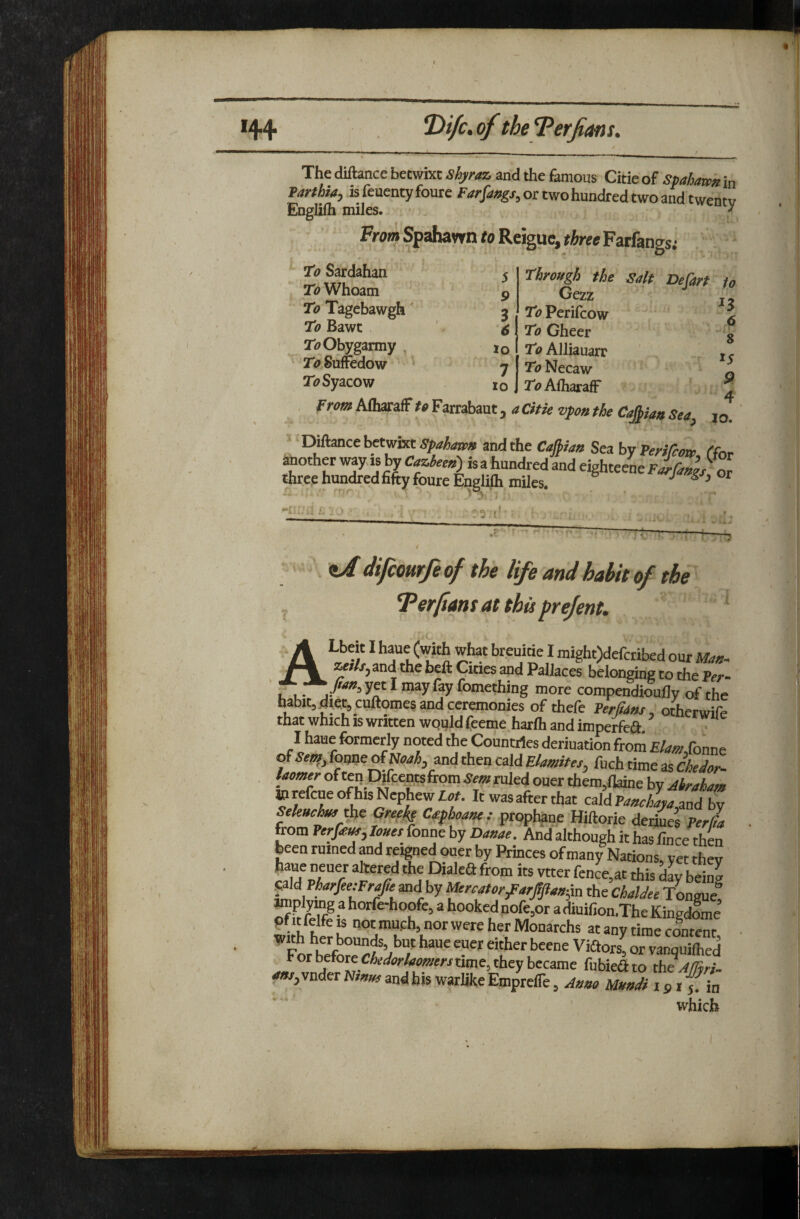 144 Diſc. of the Perſians.
The diſtance betwixt Shyraz and the famous Citie of Spahawn in
Parthia, is ſeuenty foure Farſangs, or two hundred two and twenty
Engliſh miles.
From Spahawn to Reigue, three Farſangs;
To Sardahan 5
To Whoam 9
To Tagebawgh 3
To Bawt 6
To Obygarmy 10
To Suffedow 7
To Syacow 10
Through the Salt Deſart to
Gezz 13
To Periſcow 6
To Gheer 8
To Alliauarr 15
To Necaw 9
To Aſharaff 4
From Aſharaff to Farrabaut, a Citie vpon the Caſpian Sea, 10.
Diſtance betwixt Spahawn and the Caſpian Sea by Periſcow, (for
another way is by Cazbeen) is a hundred and eighteene Farſangs, or
three hundred fifty foure Engliſh miles.
A diſcourſe of the life and habit of the
Perſians at this preſent.
ALbeit I haue (with what breuitie I might)deſcribed our Man-
zeils, and the beſt Cities and Pallaces belonging to the Per-
ſian, yet I may ſay ſomething more compendiouſly of the
habit, diet, cuſtomes and ceremonies of theſe Perſians, otherwiſe
that which is written would ſeeme harſh and imperfect.
I haue formerly noted the Countries deriuation from Elam,ſonne
of Sem, ſonne of Noah, and then cald Elamites, ſuch time as Chedor-
laomer of ten Diſcents from Sem ruled ouer them,ſlaine by Abraham
in reſcue of his Nephew Lot. It was after that cald Panchaya,and by
Seleuchus the Greeke Cæphoane: prophane Hiſtorie deriues Perſia
from Perſæus, Ioues ſonne by Danae. And although it has ſince then
been ruined and reigned ouer by Princes of many Nations, yet they
haue neuer altered the Dialect from its vtter ſence,at this day being
cald Pharſee:Fraſie and by Mercator,Farſiſtan;in the Chaldee Tongue
implying a horſe-hoofe, a hooked noſe,or a diuiſion.The Kingdome
of it ſelfe is not much, nor were her Monarchs at any time content,
with her bounds, but haue euer either beene Victors, or vanquiſhed
For before Chedorlaomers time, they became ſubiect to the Aſſyri-
ans, vnder Ninus and his warlike Empreſſe, Anno Mundi 1915. in
which